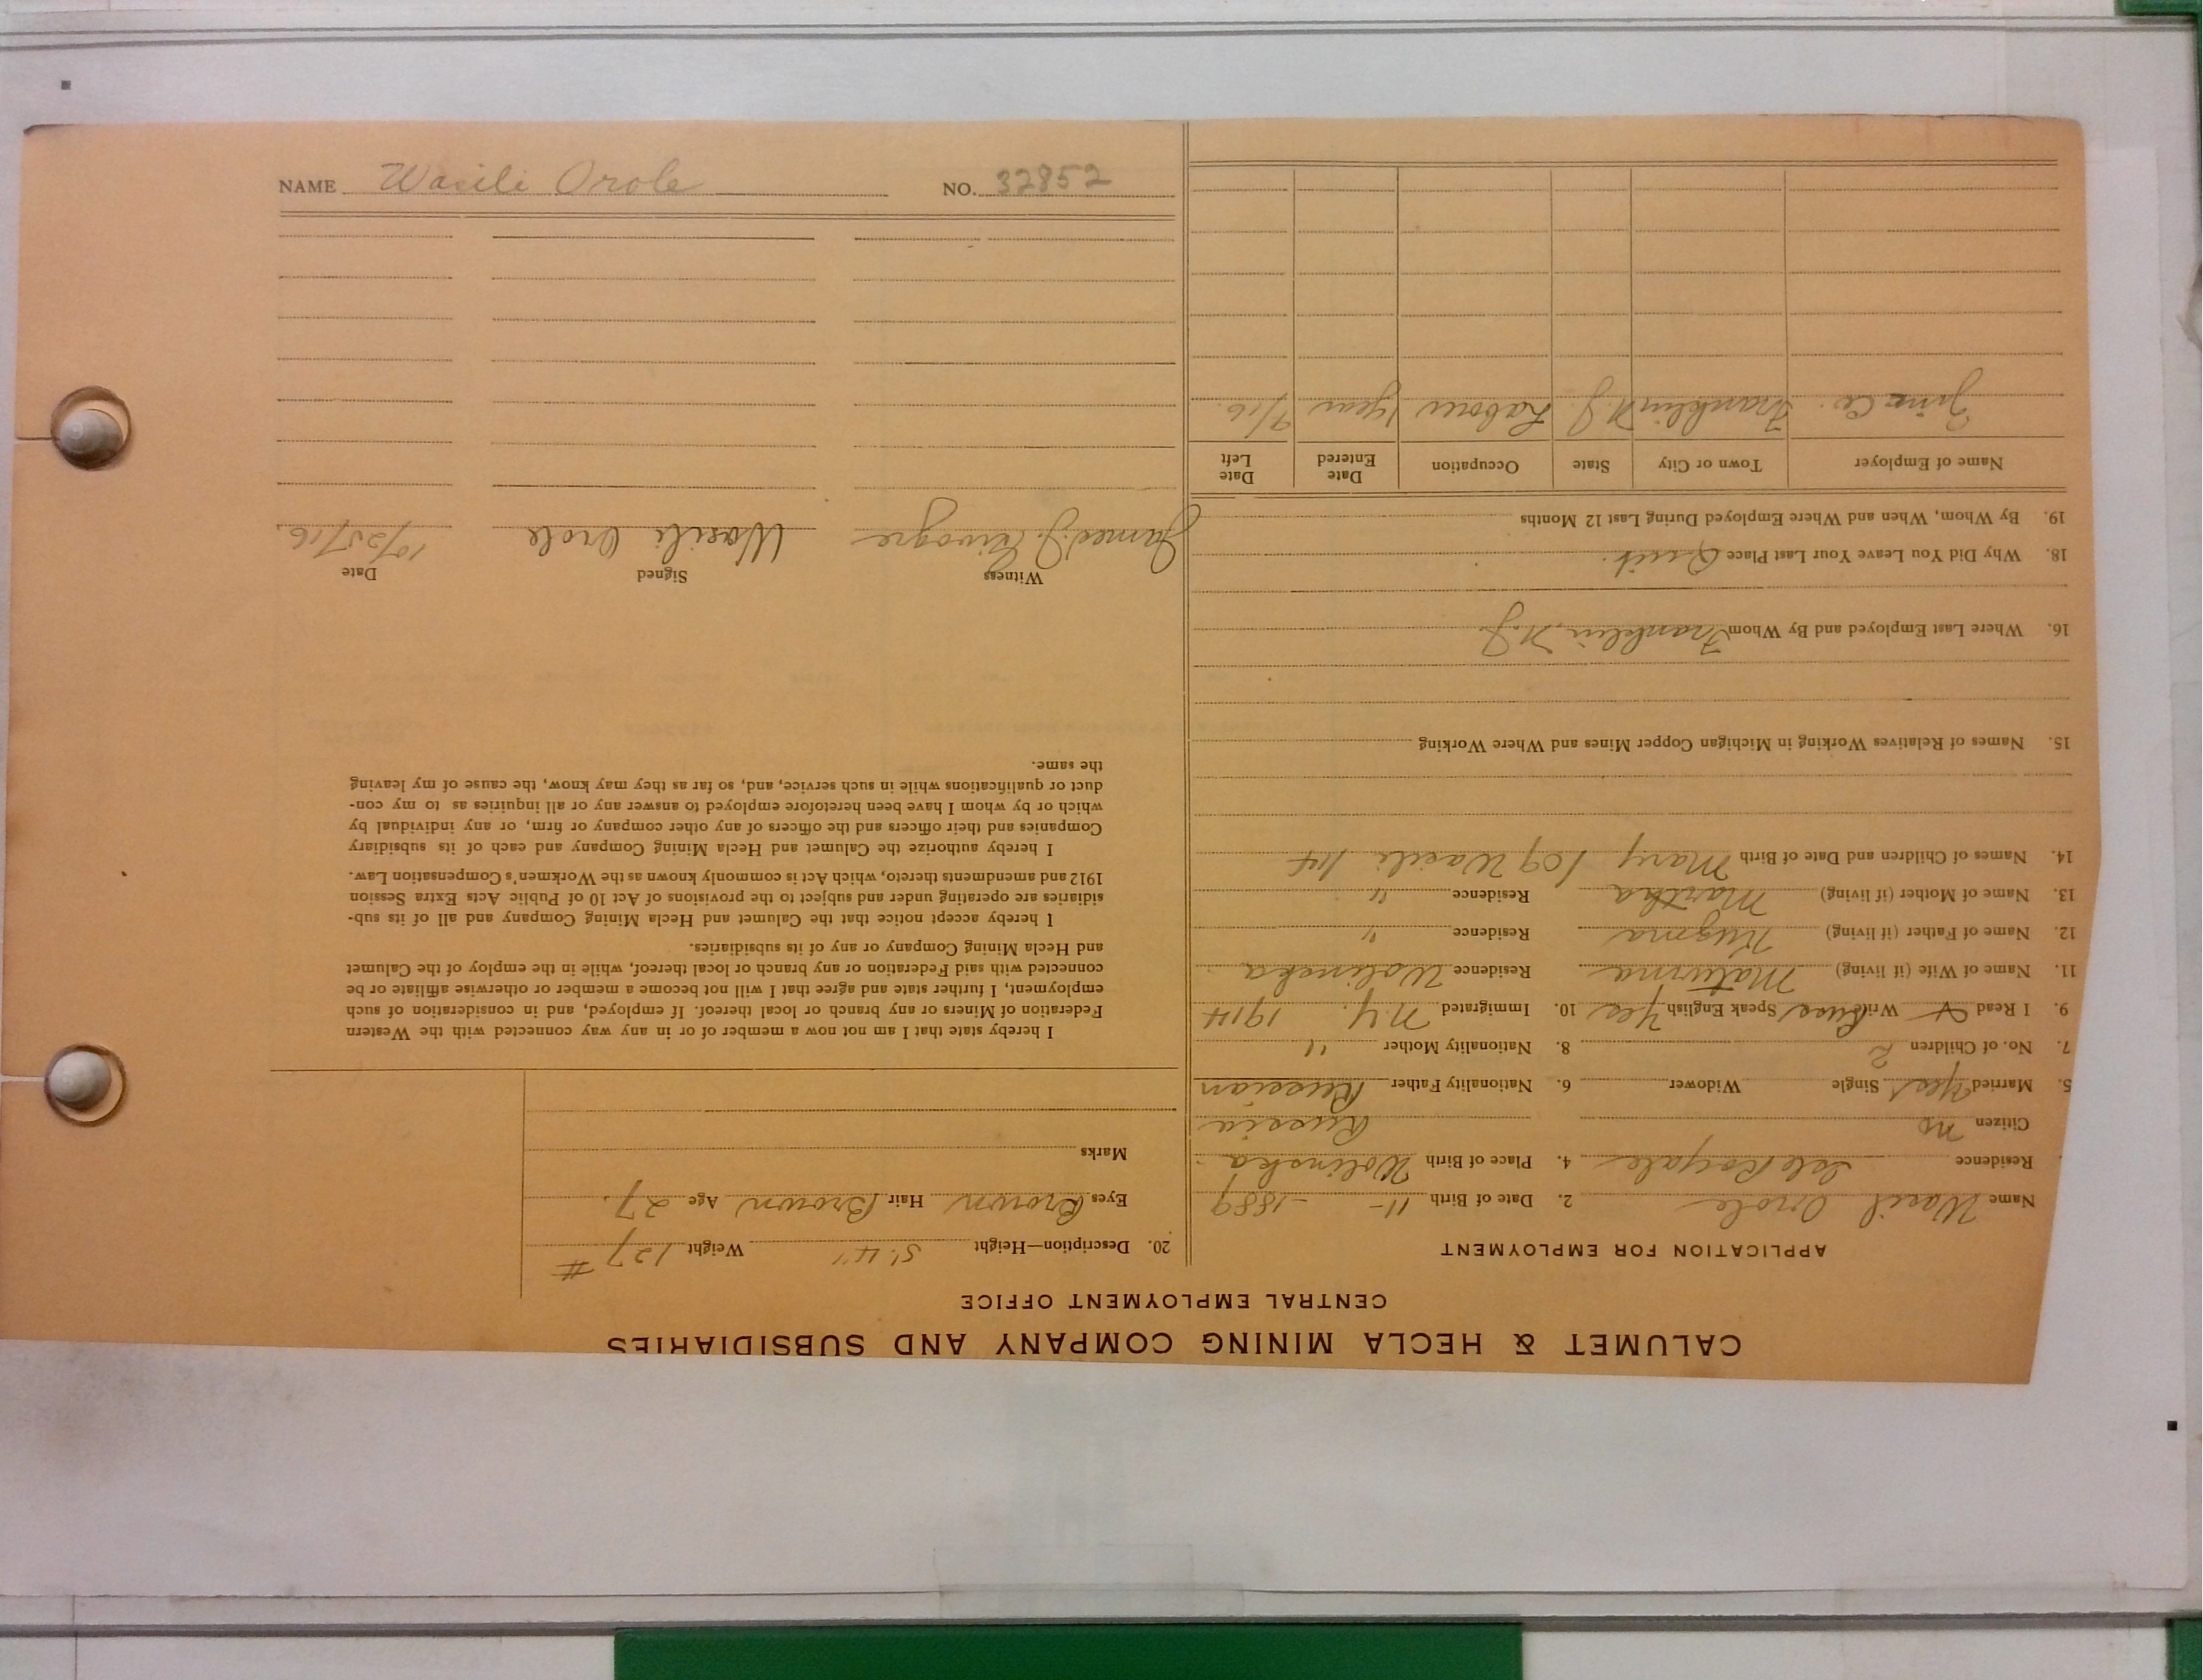 NAME Wasili Orole NO. 32852
CALUMET & HECLA MINING COMPANY AND SUBSIDIARIES
CENTRAL EMPLOYMENT OFFICE
APPLICATION FOR EMPLOYMENT
Name Wasil Orole 2. Date of Birth 11- -1889
Residence Isle Royale 4. Place of Birth Wolinska
Citizen no Russia
5. Married Yes Single Widower 6. Nationality Father Russian
7. No. of Children 2 8. Nationality Mother "
9. I Read & Write Russ Speak English Yes 10. Immigrated N.Y. 1914
11. Name of Wife (if living) Residence Wolinska
12. Name of Father (if living) Residence "
13. Name of Mother (if living) Martha Residence "
14. Names of Children and Date of Birth Mary Wasili
15. Names of Relatives Working in Michigan Copper Mines and Where Working
16. Where Last Employed and By Whom Franklin N.J.
18. Why Did You Leave Your Last Place Quit.
19. By Whom, When and Where Employed During Last 12 Months
Name of Employer Town or City State Occupation Date Entered Date Left
Zinc Co. Franklin N.J. Labour 1 year 9/16.
20. Description—Height 5' 4" Weight 127 #
Eyes Brown Hair Brown Age 27.
Marks
I hereby state that I am not now a member of or in any way connected with the Western
Federation of Miners or any branch or local thereof. If employed, and in consideration of such
employment, I further state and agree that I will not become a member or otherwise affiliate or be
connected with said Federation or any branch or local thereof, while in the employ of the Calumet
and Hecla Mining Company or any of its subsidiaries.
I hereby accept notice that the Calumet and Hecla Mining Company and all of its sub-
sidiaries are operating under and subject to the provisions of Act 10 of Public Acts Extra Session
1912 and amendments thereto, which Act is commonly known as the Workmen's Compensation Law.
I hereby authorize the Calumet and Hecla Mining Company and each of its subsidiary
Companies and their officers and the officers of any other company or firm, or any individual by
which or by whom I have been heretofore employed to answer any or all inquiries as to my con-
duct or qualifications while in such service, and, so far as they may know, the cause of my leaving
the same.
Witness Signed Date
James J. Wasili Orole